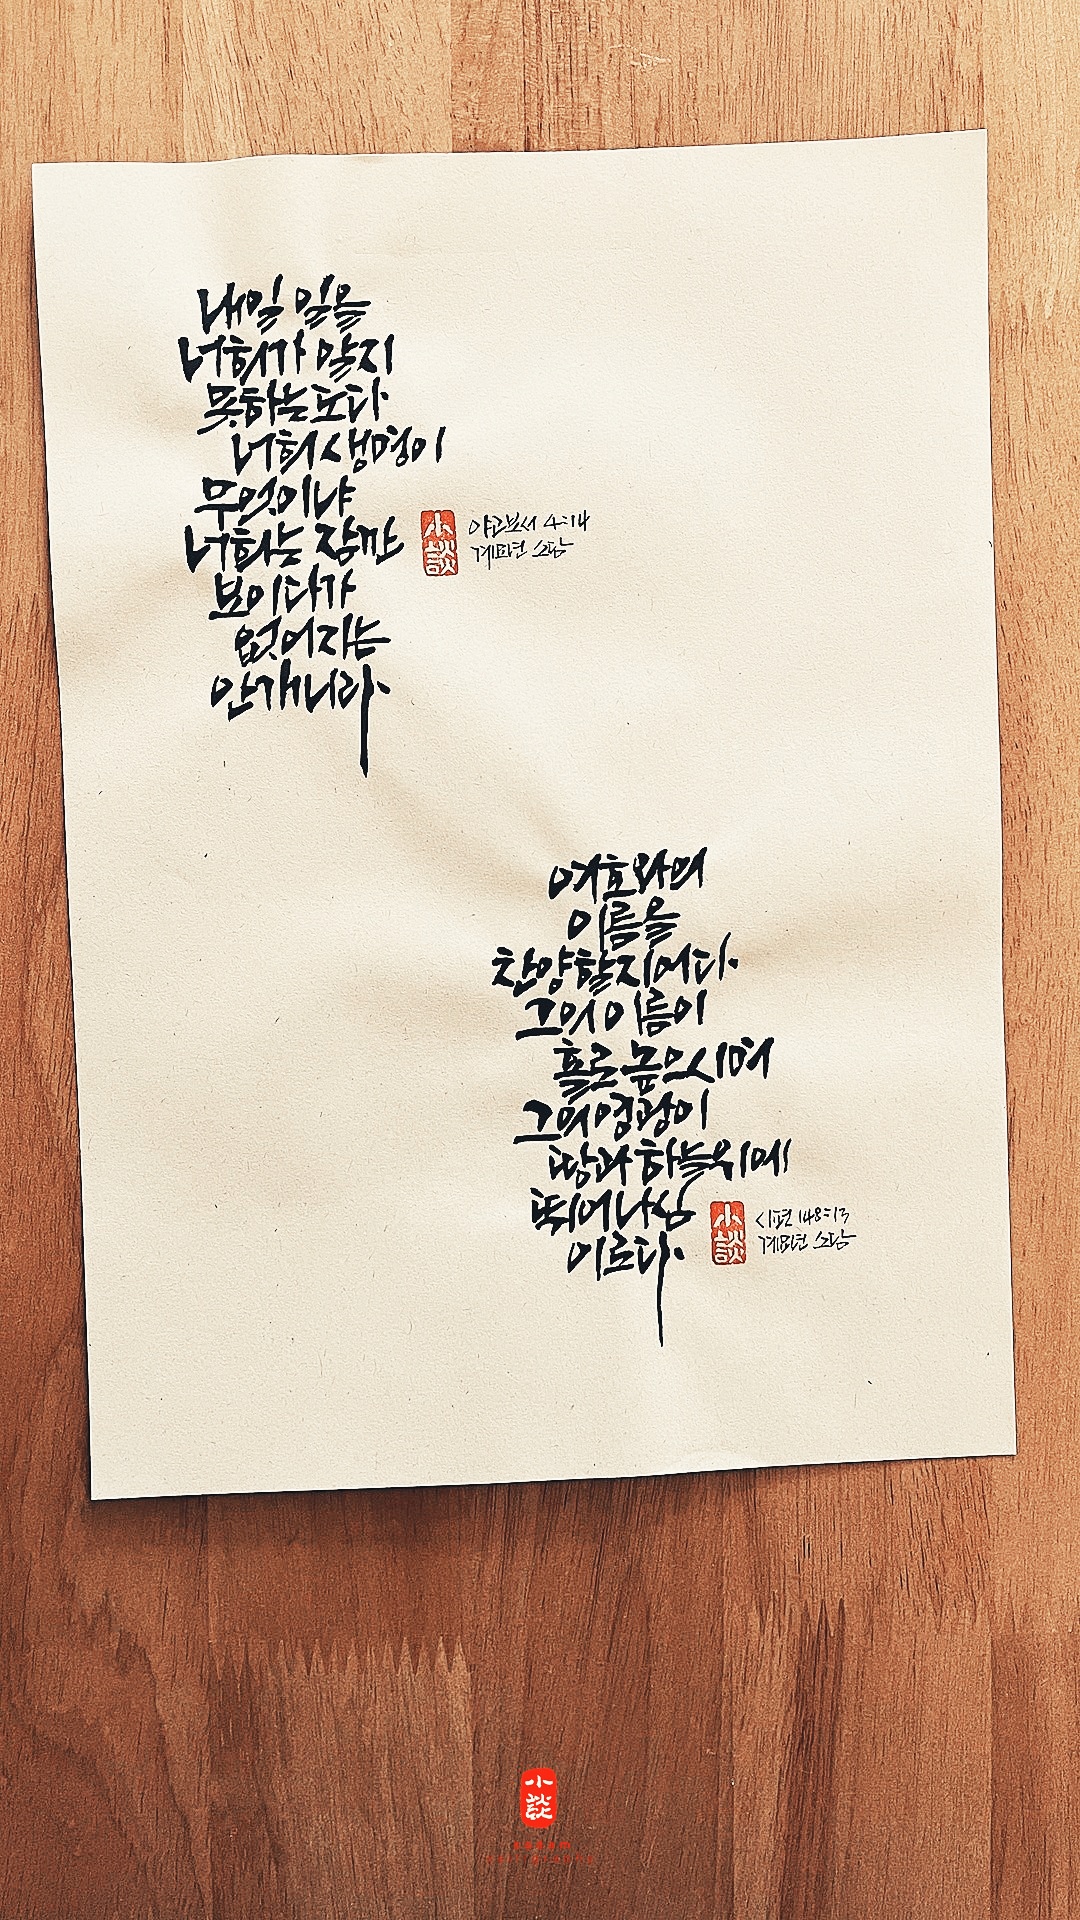 내일 일을
너희가 알지
못하는도다
너희 생명이
무엇이냐
너희는 잠깐
보이다가
없어지는
안개니라
小談
야고보서 4:14
계묘년 소담
여호와의
이름을
찬양할지어다
그의 이름이
홀로 높으시며
그의 영광이
땅과 하늘 위에
뛰어나심
이로다
小談
시편 148:13
계묘년 소담
小談